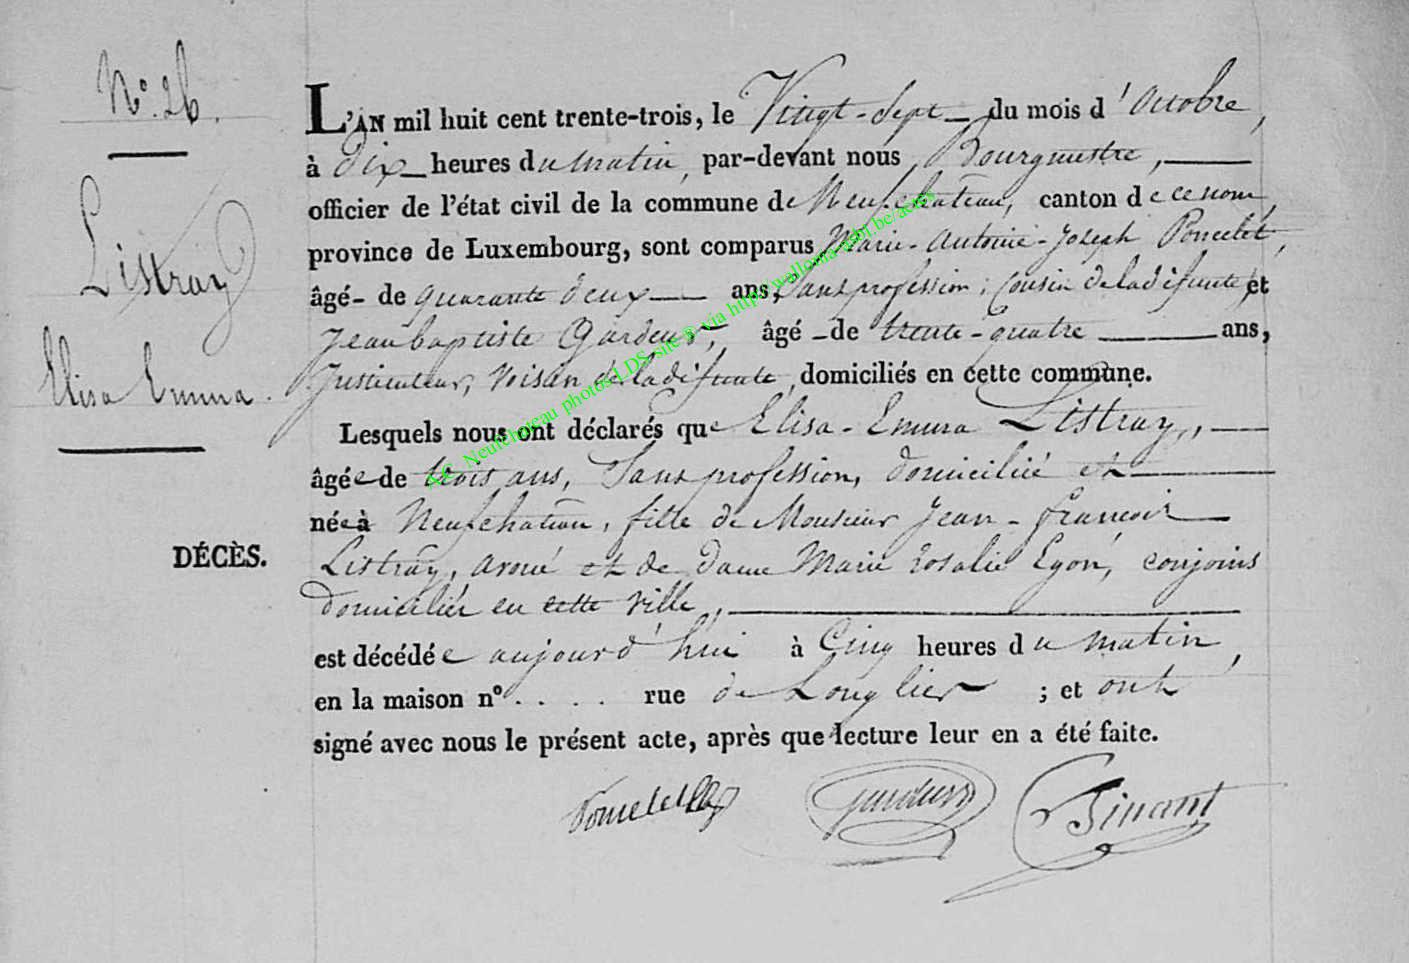 N.° 26.
Listray
Elisa Emma.
DÉCÈS.
L'AN mil huit cent trente-trois, le Vingt-Sept du mois d'Octobre,
à Dix heures du matin, par-devant nous, Bourgmestre,
officier de l'état civil de la commune de Neufchateau, canton de ce nom,
province de Luxembourg, sont comparus Marie-Antoine-Joseph Poncelet,
âgé de quarante deux ans, Sans profession, Cousin de la défunte, et
Jean baptiste Gardeur, âgé de trente-quatre ans,
Instituteur, Voisin de la défunte, domiciliés en cette commune.
Lesquels nous ont déclarés que Elisa-Emma Listray,
âgée de trois ans, Sans profession, domiciliée et
née à Neufchateau, fille de Monsieur Jean-François
Listray, avoué et de Dame Marie Rosalie Egon, conjoins
Domiciliés en cette Ville,
est décédée aujourd'hui à Cinq heures du matin,
en la maison n° .... rue de Longlier ; et ont
signé avec nous le présent acte, après que lecture leur en a été faite.
Poncelet Gardeur Sinant
EC Neufchateau photos LDS site © via http://wallonia-asbl.be/actes